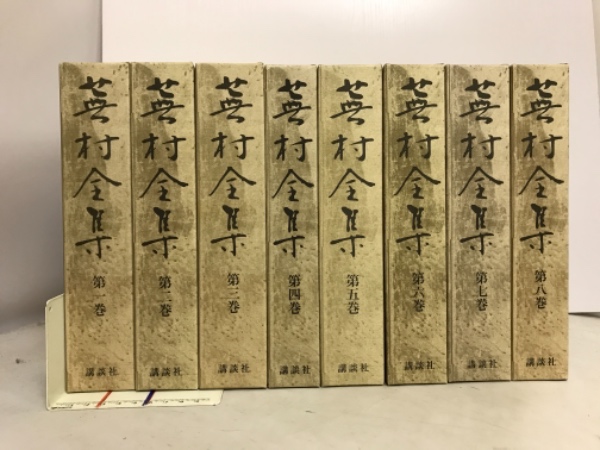 蕪村全集 第一巻 講談社
蕪村全集 第二巻 講談社
蕪村全集 第三巻 講談社
蕪村全集 第四巻 講談社
蕪村全集 第五巻 講談社
蕪村全集 第六巻 講談社
蕪村全集 第七巻 講談社
蕪村全集 第八巻 講談社